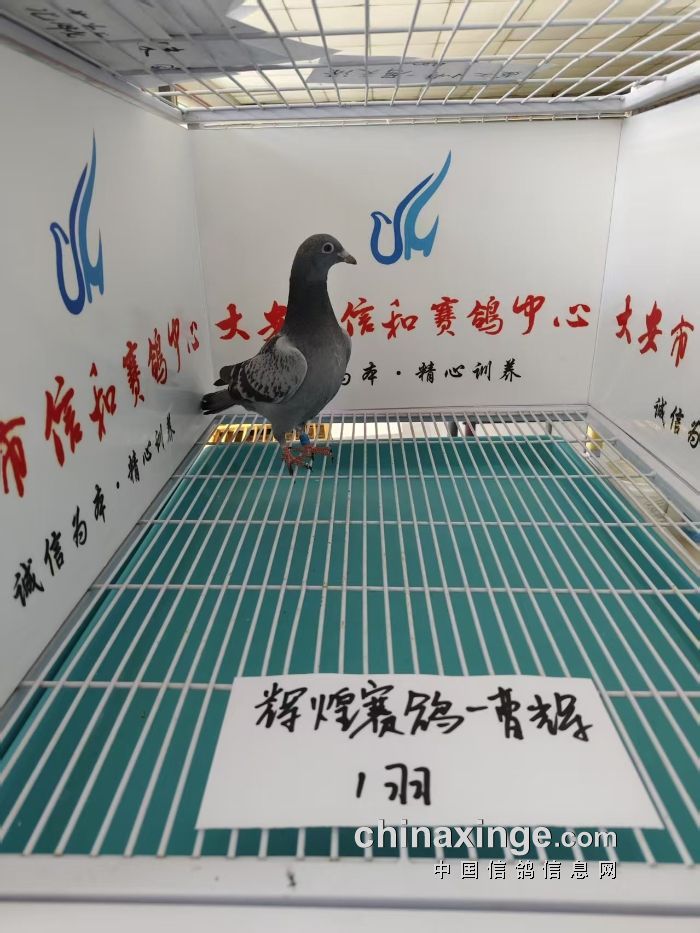 大安 信和赛鸽中心
为本·精心训养
市信和赛鸽中心
诚信为本·精心训养
大安市
诚信为
辉煌赛鸽一曹辉
1羽
chinaxinge.com
中国信鸽信息网